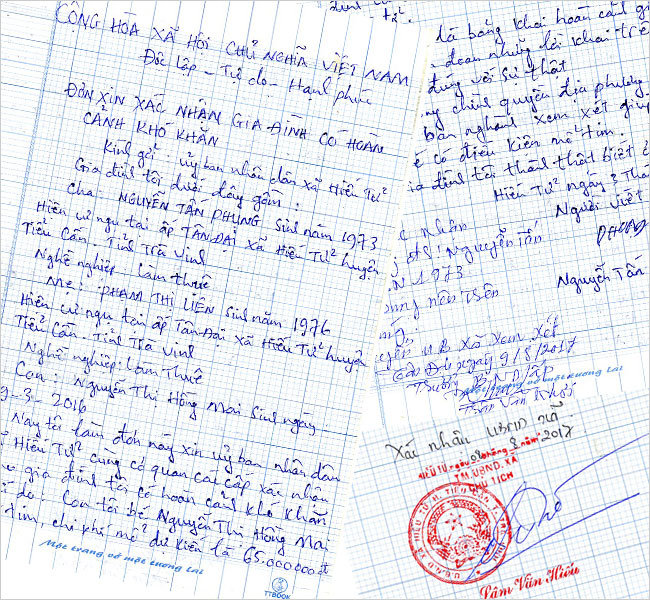 CỘNG HÒA XÃ HỘI CHỦ NGHĨA VIỆT NAM
Độc lập - Tự do - Hạnh phúc
ĐƠN XIN XÁC NHẬN GIA ĐÌNH CÓ HOÀN
CẢNH KHÓ KHĂN
Kính gửi: ủy ban nhân dân xã Hiếu Tử
Gia đình tôi dưới đây gồm:
Cha: NGUYỄN TẤN PHỤNG Sinh năm 1973
Hiện cư ngụ tại ấp TÂN ĐẠI xã Hiếu Tử huyện
Tiểu Cần - Tỉnh Trà Vinh
Nghề nghiệp: Làm thuê
Mẹ: PHẠM THỊ LIÊN Sinh năm 1976
Hiện cư ngụ tại ấp Tân Đại xã Hiếu Tử huyện
Tiểu Cần - Tỉnh Trà Vinh
Nghề nghiệp: Làm Thuê
Con: Nguyễn Thị Hồng Mai Sinh ngày
-3-2016
Nay tôi làm đơn này xin ủy ban nhân dân
Hiếu Tử cùng cơ quan các cấp xác nhận
gia đình tôi có hoàn cảnh khó khăn
do: Con tôi bé Nguyễn Thị Hồng Mai
tim, chi khí mổ dự kiến là 65.000.000đ
Một trang vở một tương lai
TTBOOK
là bảng khai hoàn cảnh
đoan những lời khai
đúng với sự thật
chính quyền địa phương
ban nghành xem xét giúp
có điều kiện mổ tim.
gia đình tôi thành thật biết
Hiếu Tử ngày
Người viết
Phụng
Nguyễn Tấn
nhân
Nguyễn Tấn
1973
nên trên
U.B xã xem xét
Tân Đại ngày 9/8/2017
Trưởng BND ấp
một tương lai
Trần Văn
Xác nhận UBND xã
HIẾU TỬ, ngày 09 tháng 8 năm 2017
TM. UBND. XÃ
CHỦ TỊCH
Lâm Văn Hiếu